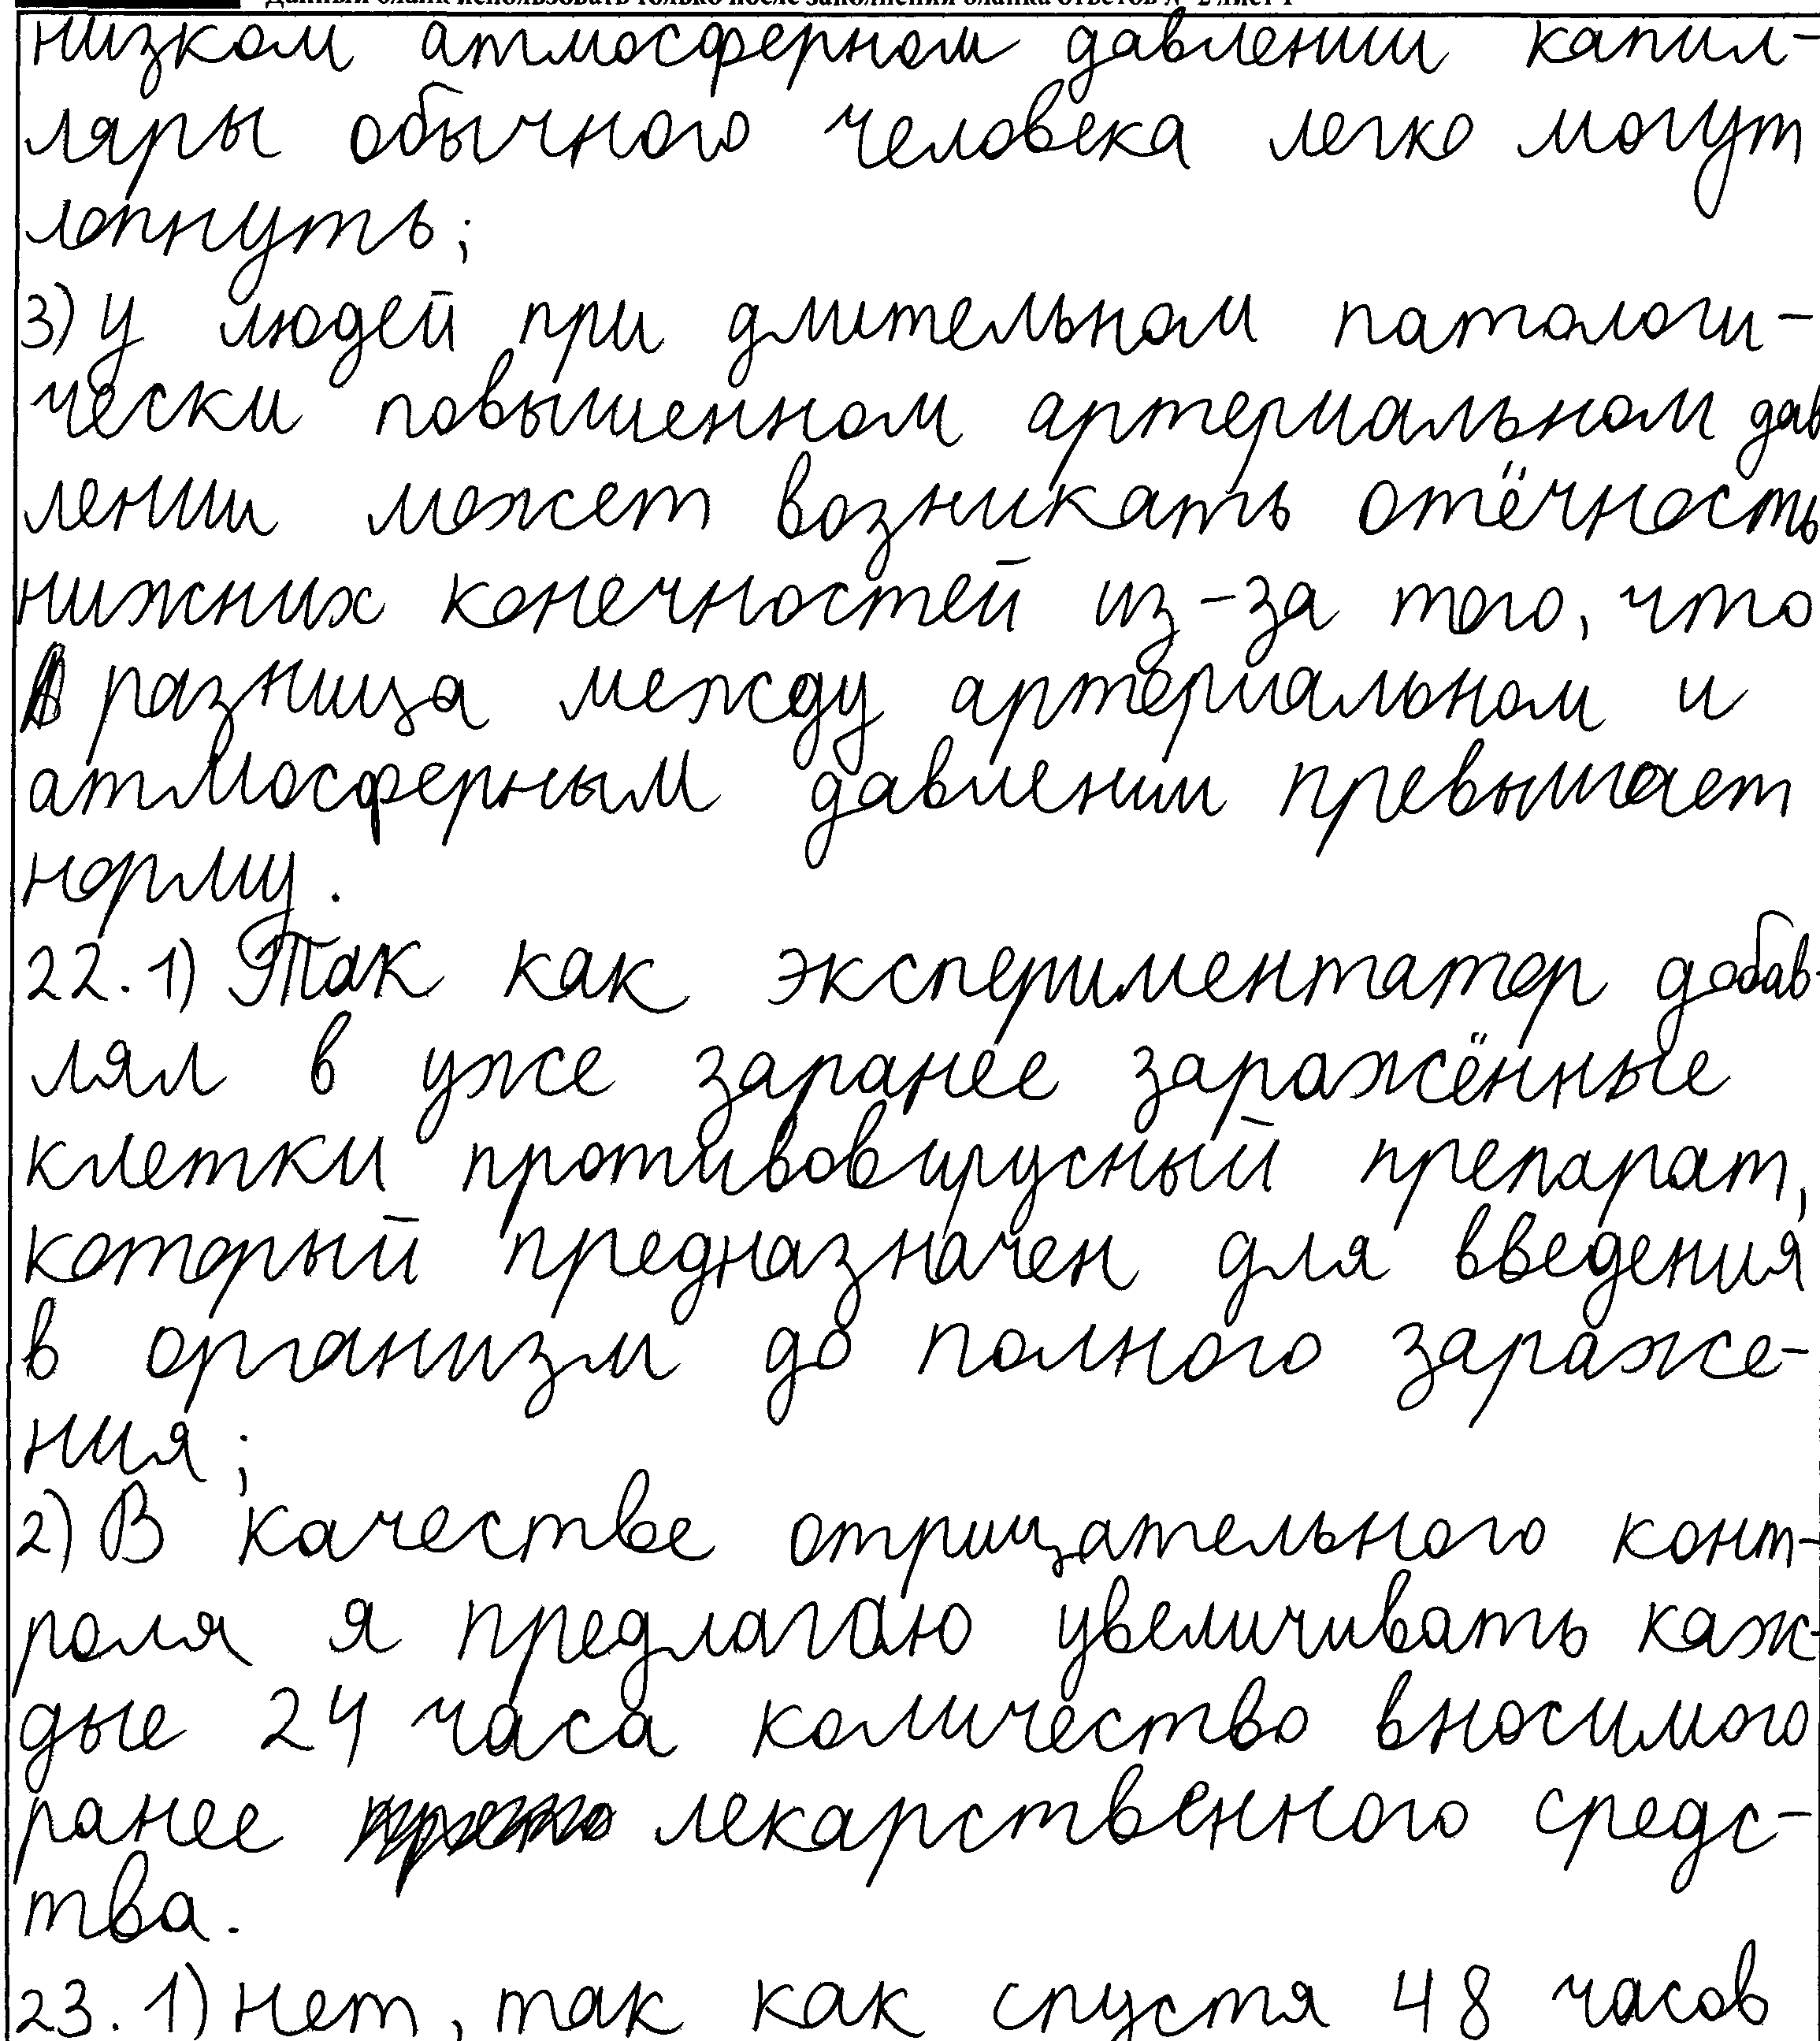 Данный бланк использовать только после заполнения бланка ответов № 2 лист 1
низком атмосферном давлении капил-
ляры обычного человека легко могут
лопнуть;
3) у людей при длительном патологи-
чески повышенном артериальном дав
лении может возникать отёчность
нижних конечностей из-за того, что
разница между артериальном и
атмосферным давлении превышает
норму.
22. 1) Так как экспериментатор добав-
лял в уже заранее заражённые
клетки противовирусный препарат,
который предназначен для введения
в организм до полного зараже-
ния;
2) В качестве отрицательного конт-
роля я предлагаю увеличивать каж-
дые 24 часа количество вносимого
ранее лекарственного средс-
тва.
23. 1) нет, так как спустя 48 часов